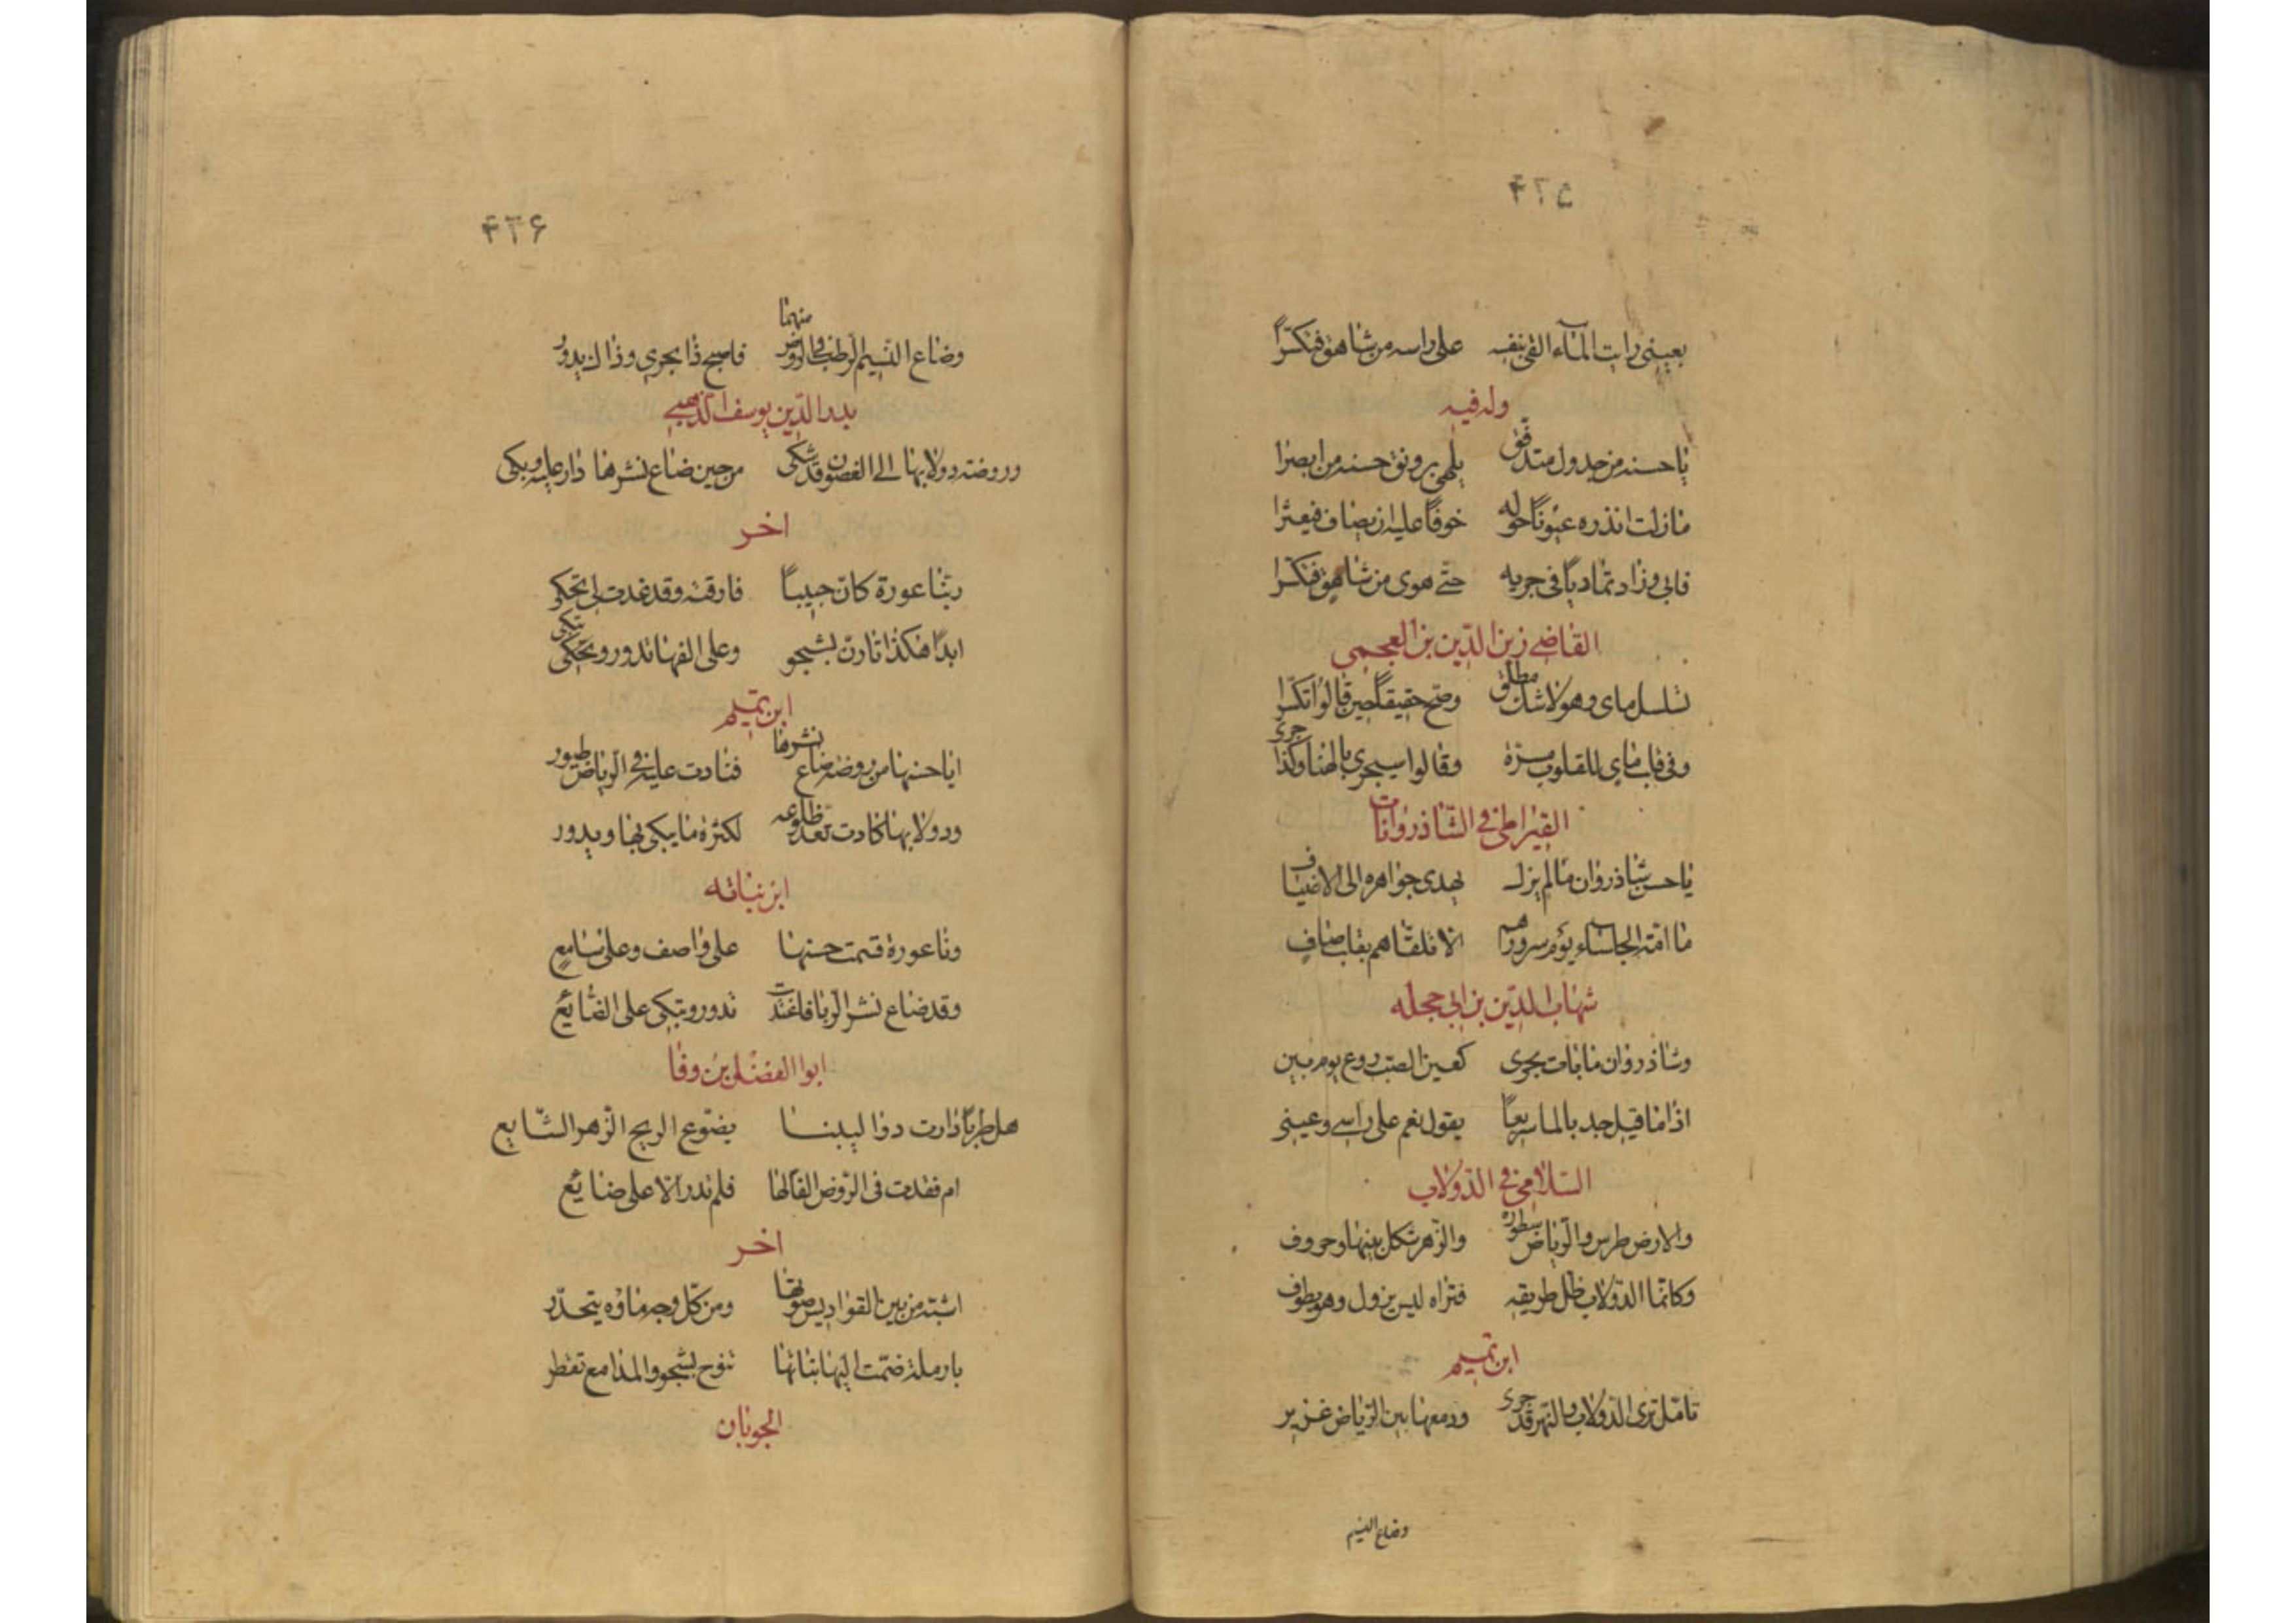 ۴۲۵
بعيني رايت المآء القى بنفسه على راسه من شاهق فتكسّرا
وله فيه
يا حسنه من جدول متدفق يلهي برونق حسنه من ابصرا
ما زلت انذره عيونًا حوله خوفًا عليه ان يصاف فيعثرا
فابى وزاد تماديًا في جريه حتّى هوى من شاهق فتكسّرا
القاضي زين الدّين بن العجمي
تسلسل ماي وهو لا شك مطلق وصحّ حقيقًا حين قالوا تكسّرا
وفي قلب ماي للقلوب مسرّة وقالوا سيجري بالهنا وكذا جرى
القيراطي في الشّاذروانات
يا حسن شاذروان ما لم يزل يهدى جواهره الى الاضياف
ما امّته الجلسآء يوم سرورهم الا تلقّاهم بقلب صاف
شهاب الدّين بن ابي حجله
وشاذروان ما بات يجرى كعين الصبّ روع يوم بين
اذا ما قيل جد بالما سريعًا يقول نعم على راسي وعيني
السّلامي في الدّولاب
والارض طرس والرّياض سطوره والزّهر شكل بينها وحروف
وكانّما الدّولاب ظلّ طريقه فتراه ليس يزول وهو يطوف
ابن تميم
تامّل ترى الدّولاب والنهر قد جرى ودمعها بين الرّياض غزير
وضاع النسيم
۴۲۶
وضاع النّسيم الرّطب في الرّوض منهما فاصبح ذا يجري وذاك يدور
بدر الدّين يوسف الذّهبي
وروضة دولابها الى الغصون قد شكى من حين ضاع نشرها دار عليه وبكى
اخر
ربّ ناعورة كانّ حبيبًا فارقته وقد غدت لي تحكي
ابدًا هكذا تارنّ بشجو وعلى الفها تدور وتبكي
ابن تميم
ايا حسنها من روضة ضاع نشرها فنادت عليه في الرّياض طيور
ودولابها كادت تعدّ ظلوعه لكثرة ما يبكي بها ويدور
ابن نباته
وناعورة قسمت حسنها على واصف وعلى سامع
وقد ضاع نشر الرّبا فاغتدت تدور وتبكي على الضّايع
ابوا الفضل بن وفا
هل طربًا دارت دوا ليبنا يضوّع الريح الزّهر الشّايع
ام فقدت في الرّوض الفًا لها فلم تدر الا على ضايع
اخر
ومن كلّ وجه ماؤه يتحدّر
بارملة ضمّت اليها بناتها تنوح بشجو والمدامع تقطر
الجوبان